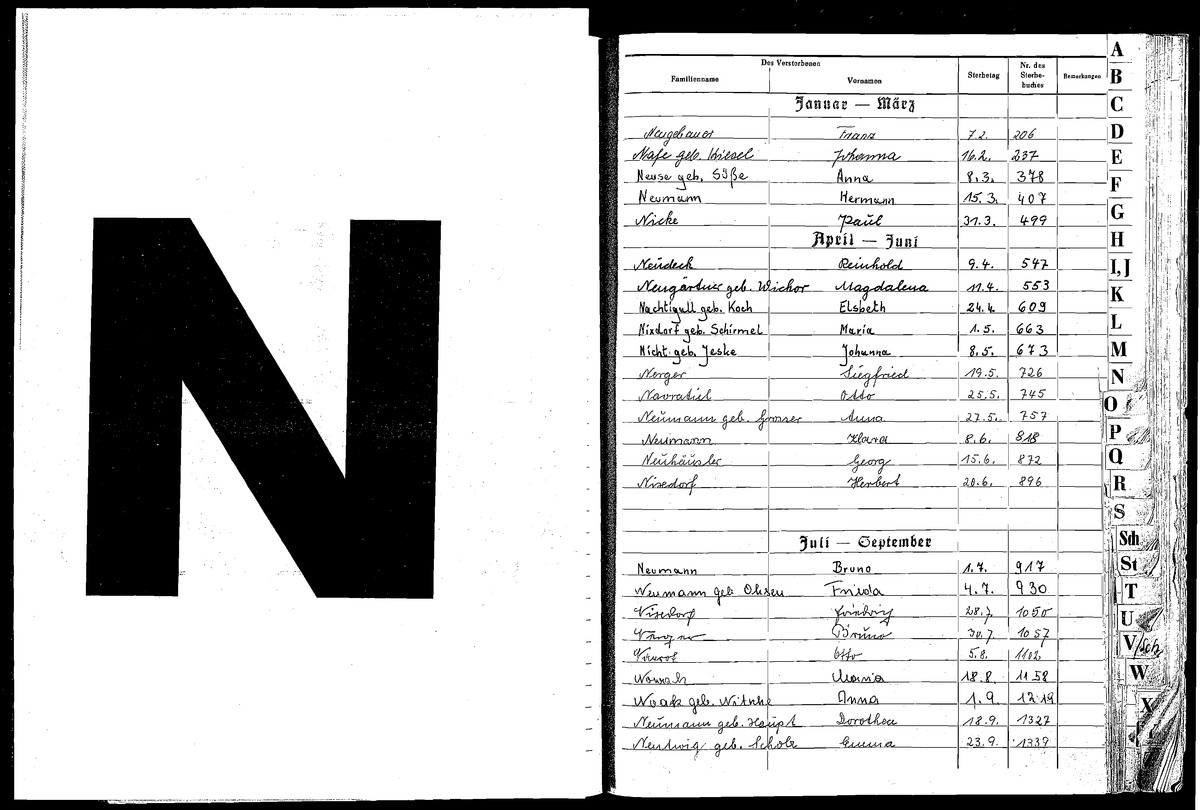 N
Des Verstorbenen
Familienname Vornamen Sterbetag Nr. des Sterbe-buches Bemerkungen
Januar — März
Neugebauer Franz 7.2. 206
Nafe geb. Kiesel Johanna 16.2. 237
Neuse geb. Süße Anna 8.3. 378
Neumann Hermann 15.3. 407
Nicke Paul 31.3. 499
April — Juni
Neudeck Reinhold 9.4. 547
Neugärtner geb. Wichor Magdalena 11.4. 553
Nachtigall geb. Koch Elsbeth 24.4. 609
Nixdorf geb. Schirmel Maria 1.5. 663
Nicht geb. Jeske Johanna 8.5. 673
Nerger Siegfried 19.5. 726
Navratiel Otto 25.5. 745
Neumann geb. Grosser Anna 27.5. 757
Neumann Klara 8.6. 818
Neuhäusler Georg 15.6. 872
Nixdorf Herbert 20.6. 896
Juli — September
Neumann Bruno 1.7. 917
Neumann geb. Frida 4.7. 930
Nixdorf Friedrich 28.7. 1050
Bruno 30.7. 1057
Otto 5.8. 1102
Maria 18.8. 1158
Noak geb. Anna 1.9. 1219
Neumann geb. Haupt Dorothea 18.9. 1327
Nentwig geb. Scholz Emma 23.9. 1339
A
B
C
D
E
F
G
H
I, J
K
L
M
N
O
P
Q
R
S
Sch
St
T
U
V
W
X